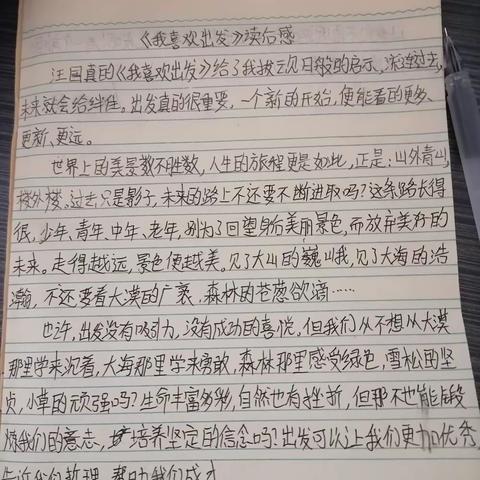 《我喜欢出发》读后感
汪国真的《我喜欢出发》给了我拨云见日般的启示，深迷过去，
未来就会给绊住。出发真的很重要，一个新的开始，便能看的更多、
更新、更远。
世界上的美景数不胜数，人生的旅程更是如此，正是：山外青山，
楼外楼。过去只是影子，未来的路上不还要不断进取吗？这条路长得
很，少年、青年、中年、老年，别为了回望身后美丽景色，而放弃美好的
未来。走得越远，景色便越美。见了大山的巍峨，见了大海的浩
瀚，不还要看大漠的广袤，森林的苍葱欲滴……
也许，出发没有吸引力，没有成功的喜悦。但我们从不想从大漠
那里学来沉着，大海那里学来勇敢，森林那里感受绿色，雪松的坚
贞，小草的顽强吗？生命丰富多彩，自然也有挫折，但那不也能锻
炼我们的意志，培养坚定的信念吗？出发可以让我们更加优秀，
告诉我们哲理，帮助我们成才